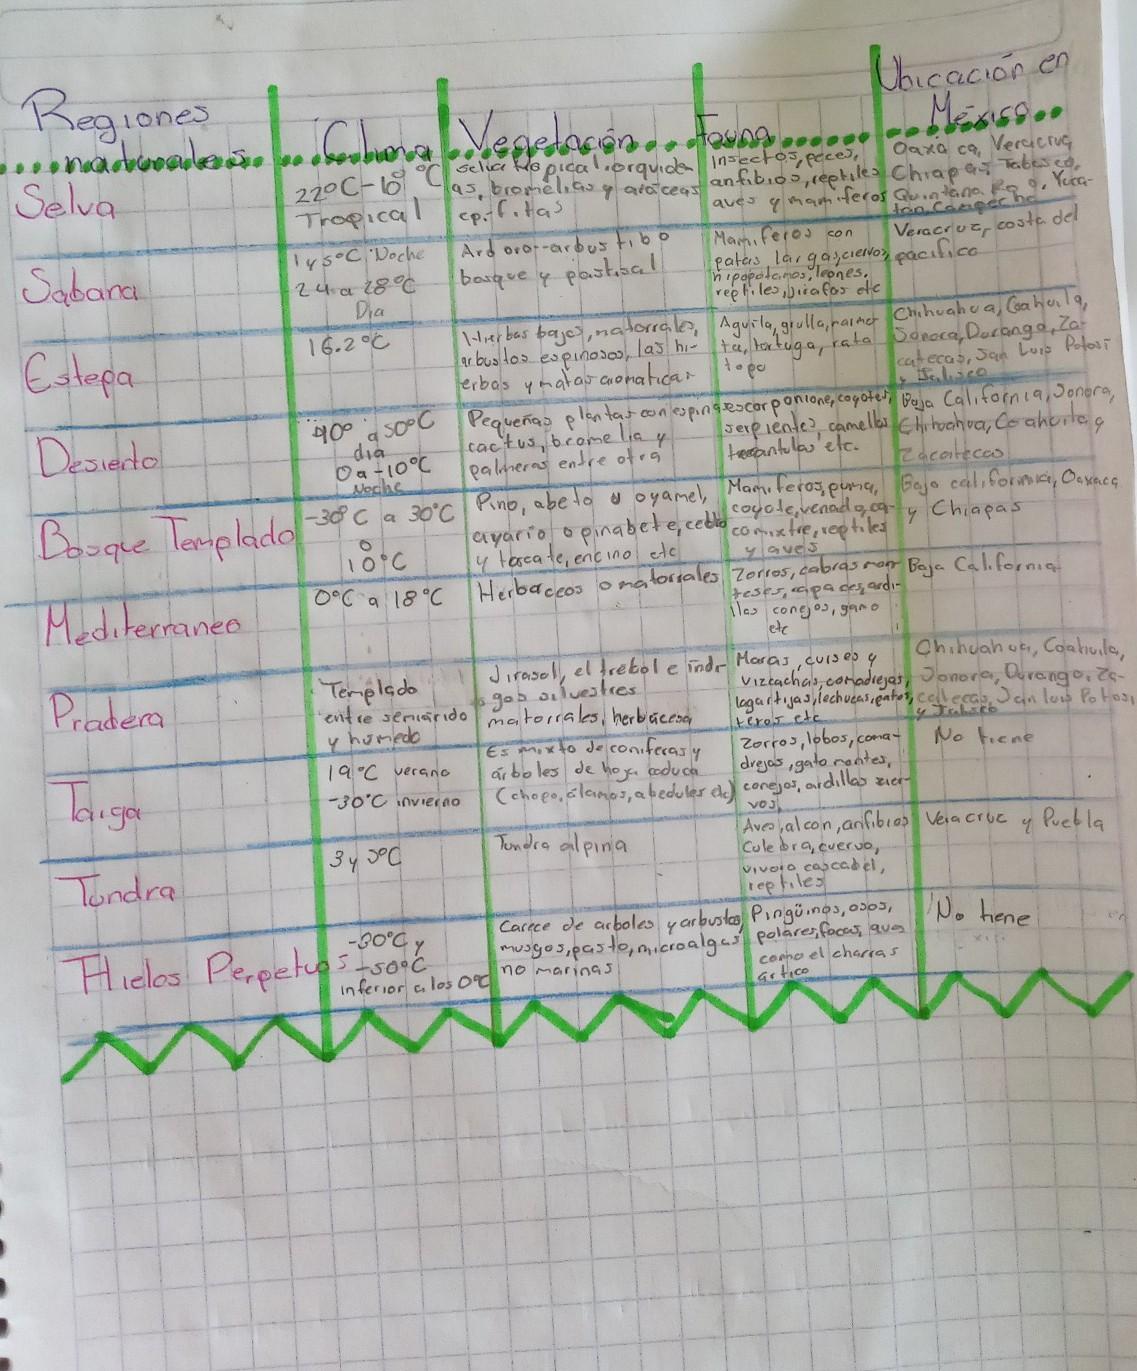 Regiones
naturales
Clima
Vegetación
Fauna
Ubicación en
México
Selva
22°C-10° °C
Tropical
selva tropical.orquide-
as, bromelias y araceas
epifitas
Insectos, peces,
anfibios, reptiles
aves y mamiferos
Oaxaca, Veracruz
Chiapas, Tabasco,
Quintana Roo, Yuca-
tan, Campeche
Sabana
1 y 5°C Noche
24 a 28°C
Dia
Ardoro-arbustibo
bosque y pastisal
Mamiferos con
patas largas, ciervos,
hipopotamos, leones,
reptiles, jirafas etc
Veracruz, costa del
pacifico
Estepa
16.2°C
Hierbas bajas, matorrales,
arbustos espinosos, las hi-
erbas y matas aromaticas
Aguila, grulla, marmo
ta, tortuga, rata
topo
Chihuahua, Coahuila,
Sonora, Durango, Za-
catecas, San Luis Potosi
y Jalisco
Desierto
40° a 50°C
dia
0 a -10°C
Noche
Pequeñas plantas con espinas
cactus, bromelia y
palmeras entre otra
escorponione, coyotes,
serpientes, camellos
tarantulas etc.
Baja California, Sonora,
Chihuahua, Coahuila y
Zacatecas
Bosque Templado
-30°C a 30°C
o
10°C
Pino, abeto u oyamel,
ayario o pinabete, cedro
y tascate, encino etc
Mamiferos, puma,
coyote, venado, ca-
comixtre, reptiles
y aves
Baja california, Oaxaca
y Chiapas
Mediterraneo
0°C a 18°C
Herbaceos o matorrales
Zorros, cabras mon
teses, rapaces, ardi-
llas conejos, gamo
etc
Baja California
Pradera
Templado
entre semiárido
y humedo
Jirasol, el trebol e indr
gos silvestres
matorrales, herbácesa
Maras, cuises y
vizcachas, comadrejas,
lagartijas, lechuzas, patos,
teros etc
Chihuahua, Coahuila,
Sonora, Durango, Za-
catecas, San luis Potosi,
y Jalisco
Taiga
19°C verano
-30°C invierno
Es mixto de coniferas y
árboles de hoja caduca
(chopo, álamos, abedules etc)
Zorros, lobos, coma-
drejas, gato montes,
conejos, ardillas cier-
vos,
No tiene
Tundra
3 y 5°C
Tundra alpina
Aves, alcon, anfibios
Culebra, cuervo,
vivora cascabel,
reptiles
Veracruz y Puebla
Hielos Perpetuos
-30°C y
-50°C
inferior a los 0°C
Carece de arboles y arbustos,
musgos, pasto, microalgas
no marinas
Pingüinos, osos,
polares, focas, aves
como el charras
ártico
No tiene